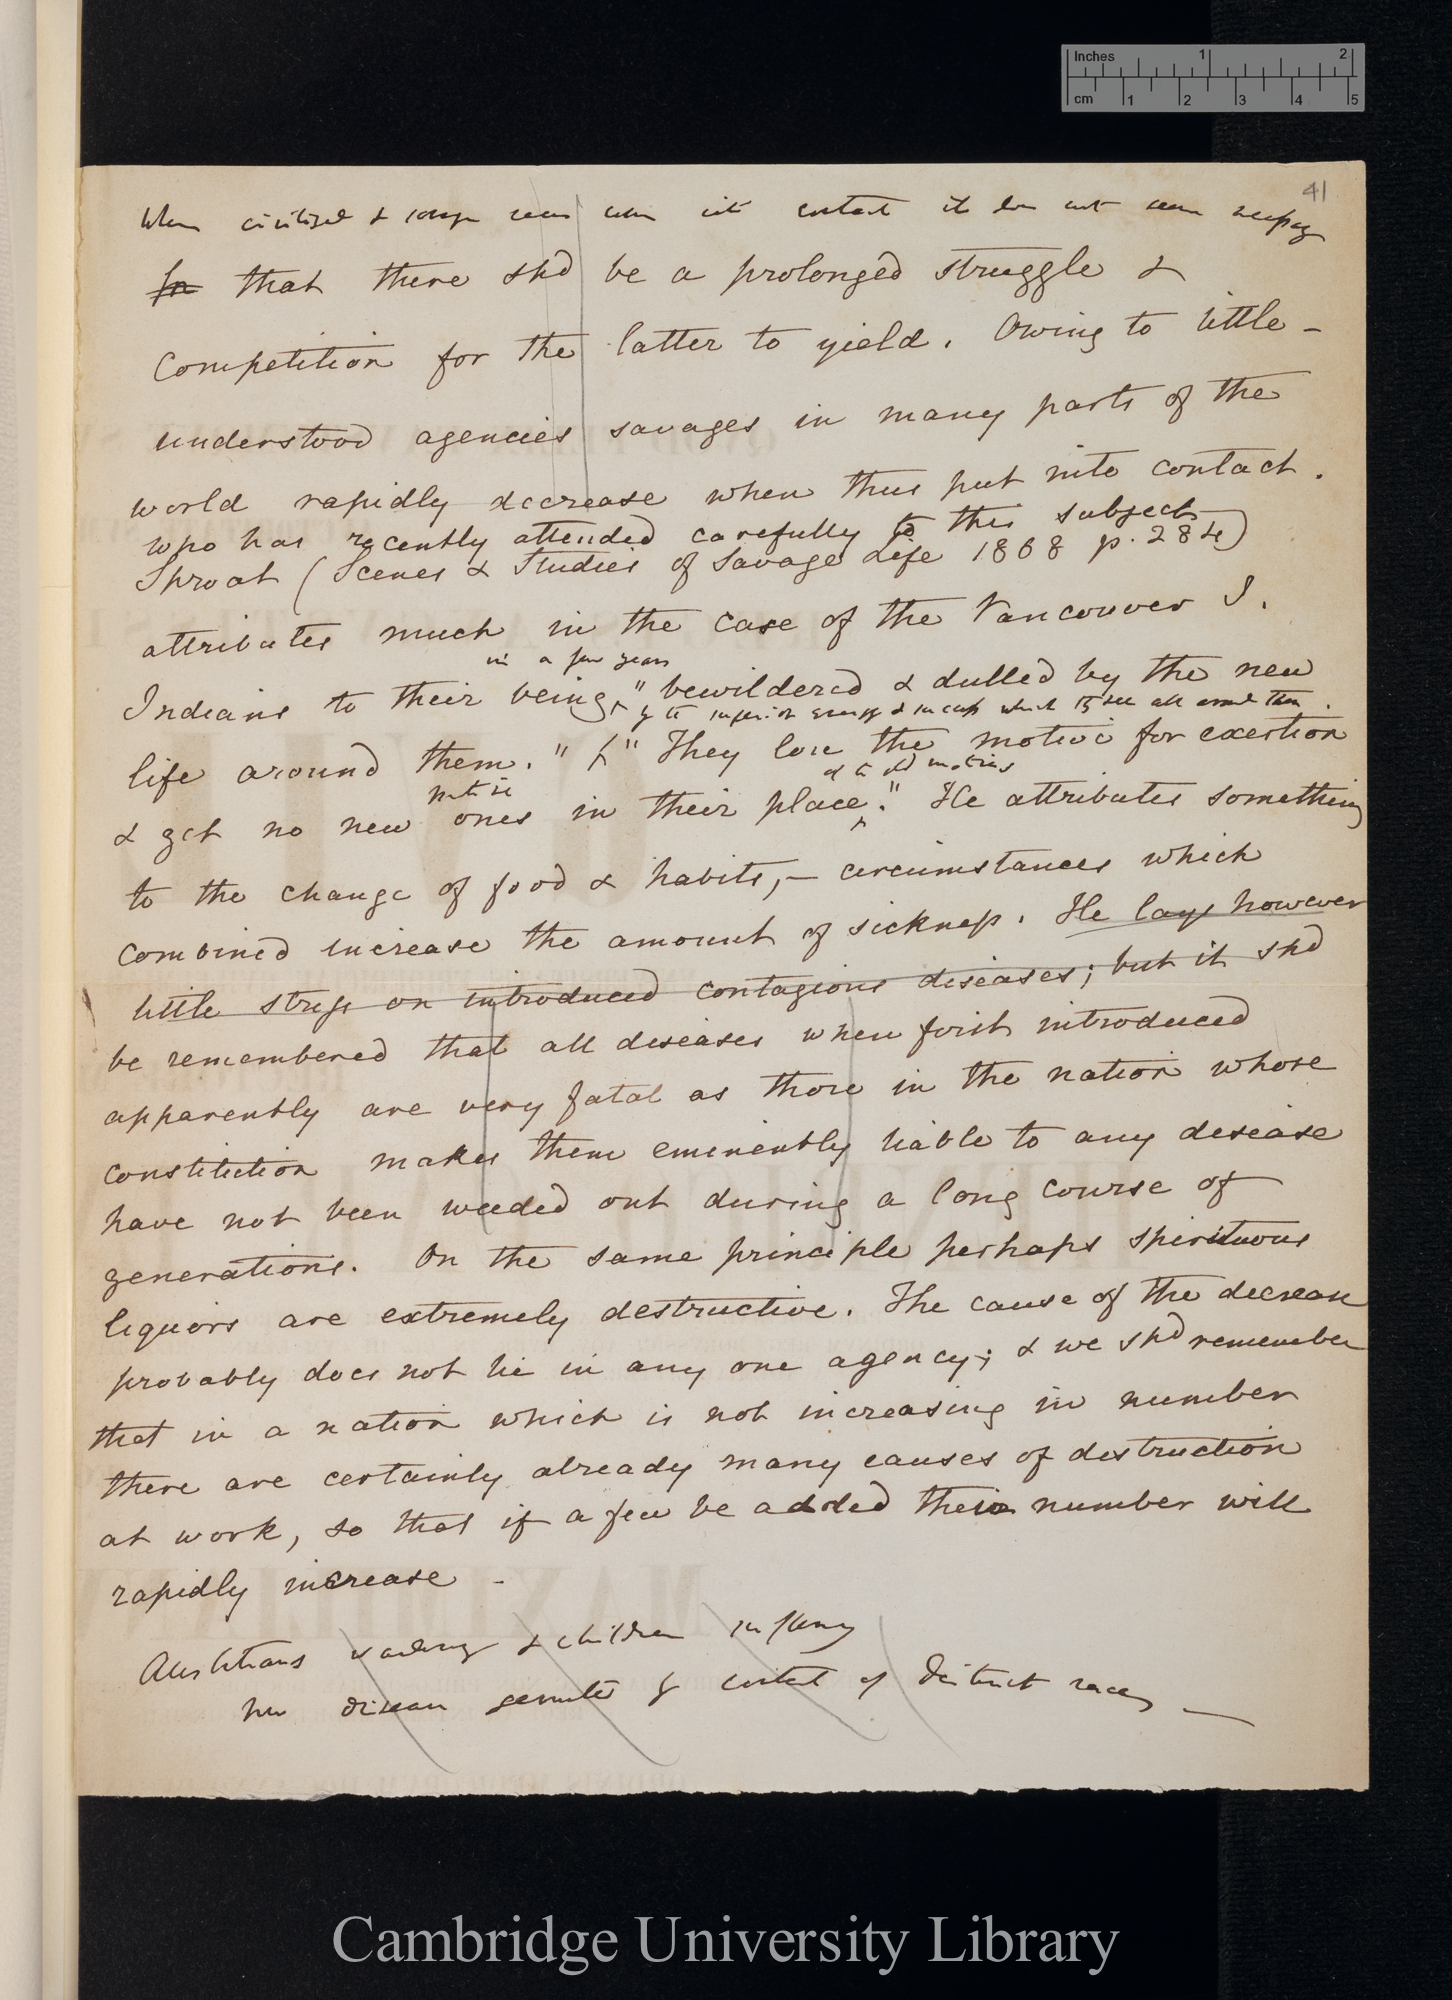 Inches 1 2
cm 1 2 3 4 5
41
When civilized & savage races come into contact it does not seem necessary
In that there shd be a prolonged struggle &
competition for the latter to yield. Owing to little-
understood agencies savages in many parts of the
world rapidly decrease when thus put into contact.
who has recently attended carefully to this subject
Sproat (Scenes & Studies of Savage Life 1868 p. 284)
attributes much in the case of the Vancouver I.
in a few years
Indians to their being, "bewildered & dulled by the new
which they see all around them.
life around them." "They lose the motive for exertion
native of the old motives
& get no new ones in their place." He attributes something
to the change of food & habits,— circumstances which
combined increase the amount of sickness. He lays however
little stress on introduced contagious diseases; but it shd
be remembered that all diseases when first introduced
apparently are very fatal as those in the nation whose
constitution makes them eminently liable to any disease
have not been weeded out during a long course of
generations. On the same principle perhaps spirituous
liquors are extremely destructive. The cause of the decrease
probably does not lie in any one agency; & we shd remember
that in a nation which is not increasing in number
there are certainly already many causes of destruction
at work, so that if a few be added their number will
rapidly increase -
& children
New disease generated by contact of distinct races —
Cambridge University Library